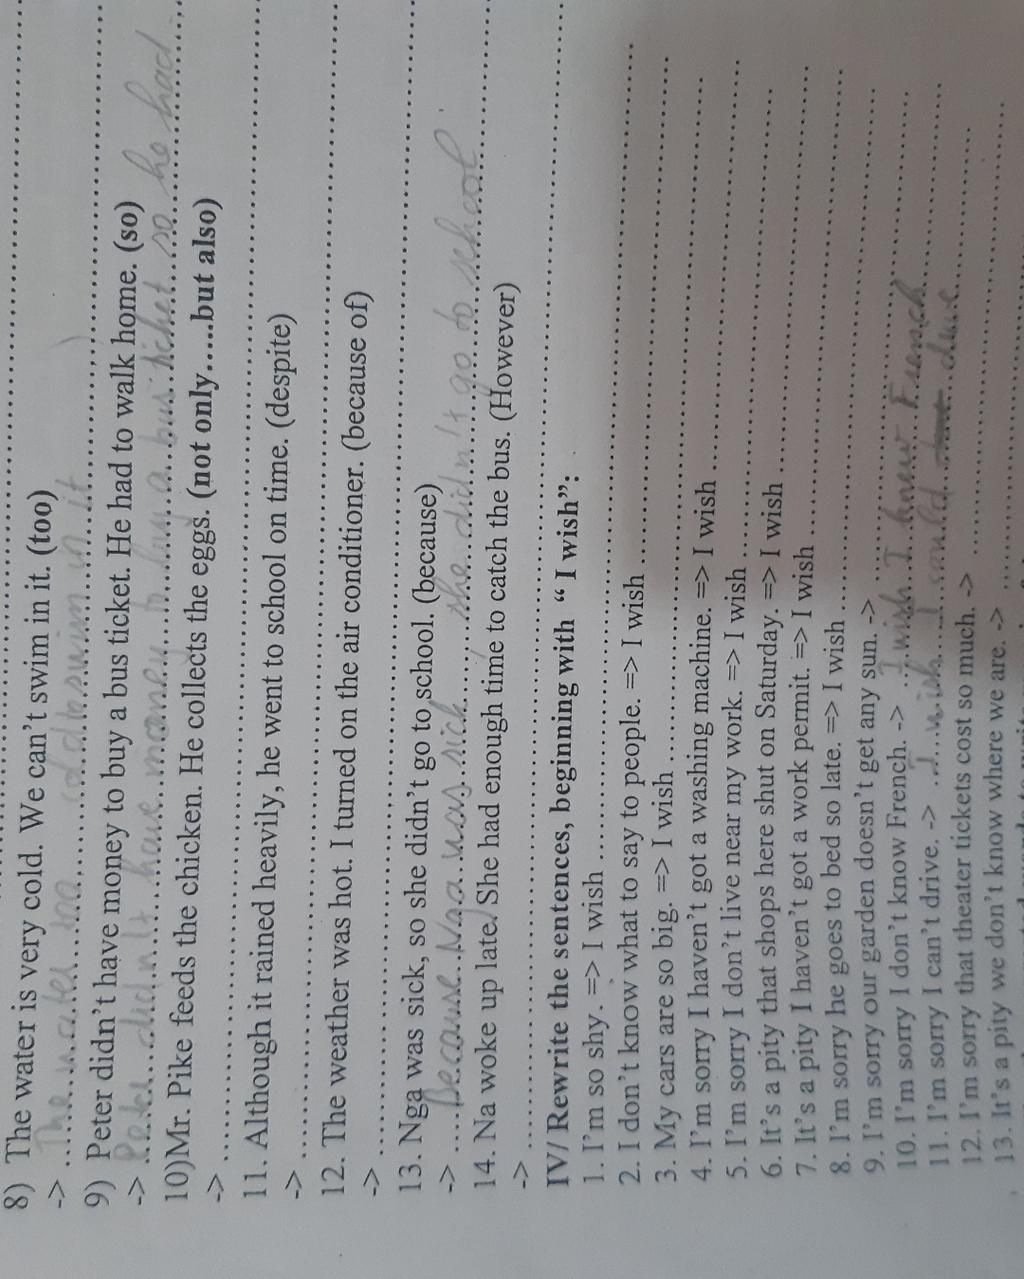 8) The water is very cold. We can't swim in it. (too)
-> The water too cold to swim in it
9) Peter didn't have money to buy a bus ticket. He had to walk home. (so)
-> Peter didn't have money to buy a bus ticket so he had
10)Mr. Pike feeds the chicken. He collects the eggs. (not only....but also)
->
11. Although it rained heavily, he went to school on time. (despite)
->
12. The weather was hot. I turned on the air conditioner. (because of)
->
13. Nga was sick, so she didn't go to school. (because)
-> Because Nga was sick she didn't go to school
14. Na woke up late. She had enough time to catch the bus. (However)
->
IV/ Rewrite the sentences, beginning with “ I wish”:
1. I'm so shy. => I wish
2. I don't know what to say to people. => I wish
3. My cars are so big. => I wish
4. I'm sorry I haven't got a washing machine. => I wish
5. I'm sorry I don't live near my work. => I wish
6. It's a pity that shops here shut on Saturday. => I wish
7. It's a pity I haven't got a work permit. => I wish
8. I'm sorry he goes to bed so late. => I wish
9. I'm sorry our garden doesn't get any sun. ->
10. I'm sorry I don't know French. -> I wish I knew French
11. I'm sorry I can't drive. -> I wish I could drive
12. I'm sorry that theater tickets cost so much. ->
13. It's a pity we don't know where we are. ->